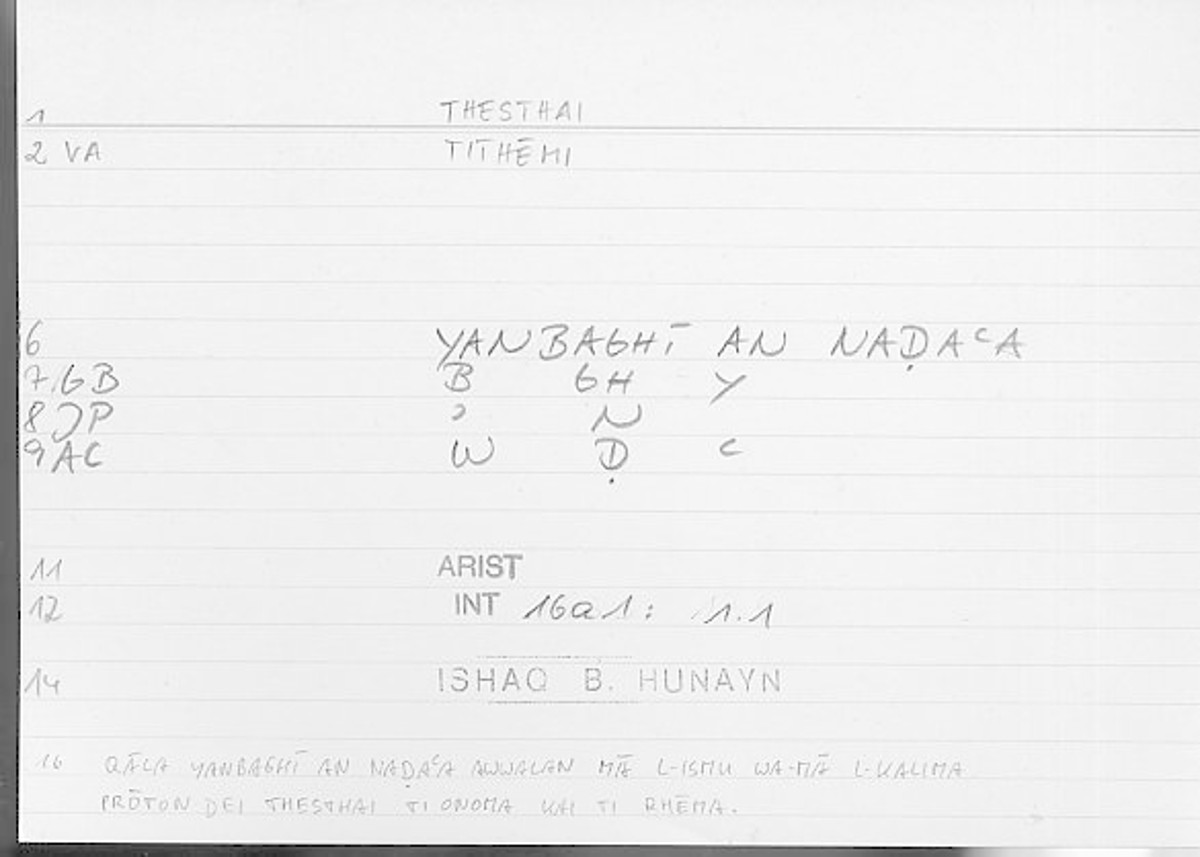 1 THESTHAI
2 VA TITHĒMI
6 YANBAGHĪ AN NAḌAᶜA
7 GB B GH Y
8 JP ʾ N
9 AC W Ḍ ᶜ
11 ARIST
12 INT 16a1: 1.1
14 ISHAQ B. HUNAYN
16 QĀLA YANBAGHĪ AN NAḌAᶜA AWWALAN MĀ L-ISMU WA-MĀ L-KALIMA
PRŌTON DEI THESTHAI TI ONOMA KAI TI RHĒMA.